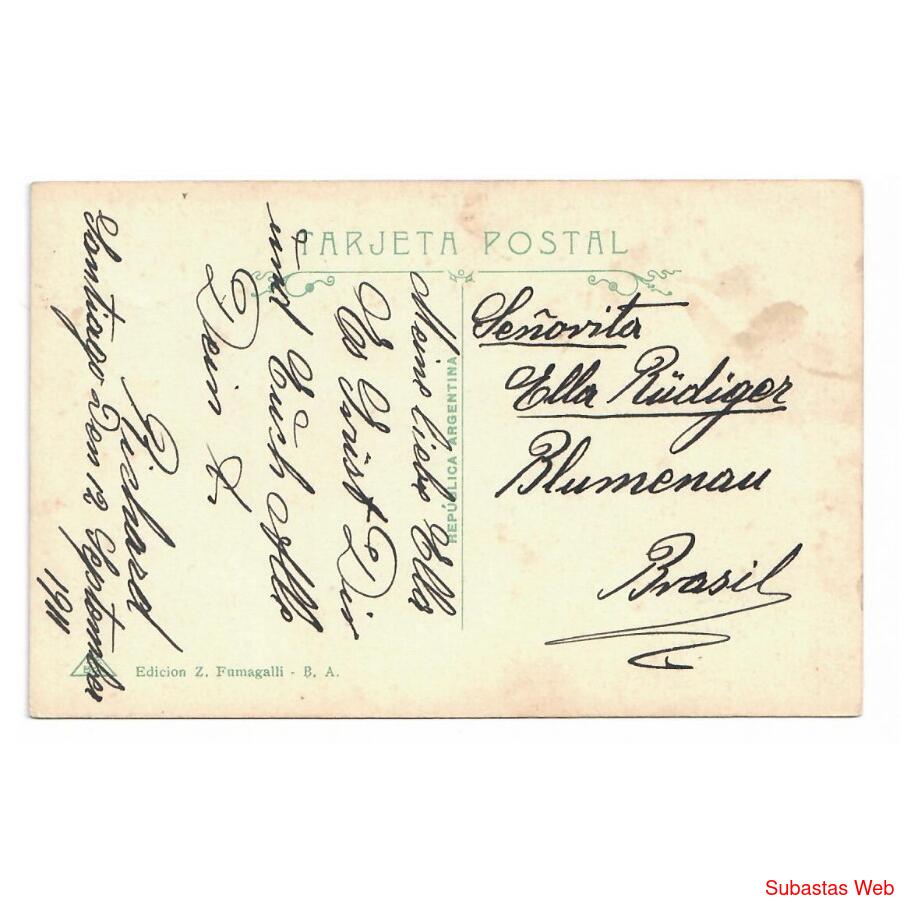 TARJETA POSTAL
REPÚBLICA ARGENTINA
Señorita
Ella Rüdiger
Blumenau
Brasil
Meine liebe Ella
Es Grüst Dir
und Euch Alle
Dein
Richard
Santiago Den 12 September
1911
Edicion Z. Fumagalli - B. A.
Subastas Web